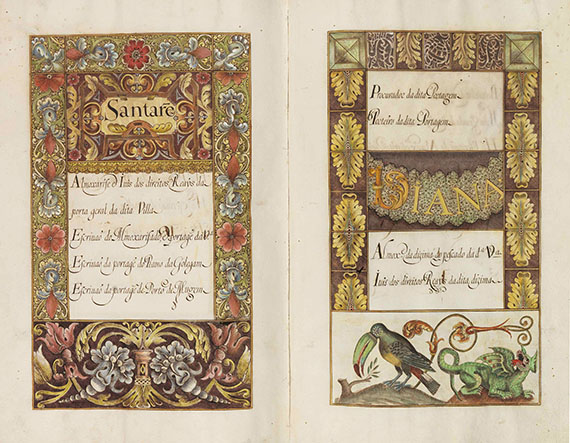 Santarē
Almoxarife & Juis dos direitos Reaes da
porta geral da dita Villa
Escrivaõ do Almoxarifado & Portagē da Vª
Escrivaõ da portagē do Ramo da Golegam
Escrivaõ da portagē de Porto de Mugem
Procurador da dita Portagem
Porteiro da dita Portagem
VIANA
Almoxᵉ da dizima do pescado da dª Vª
Juis dos direitos Reaes da dita dizima